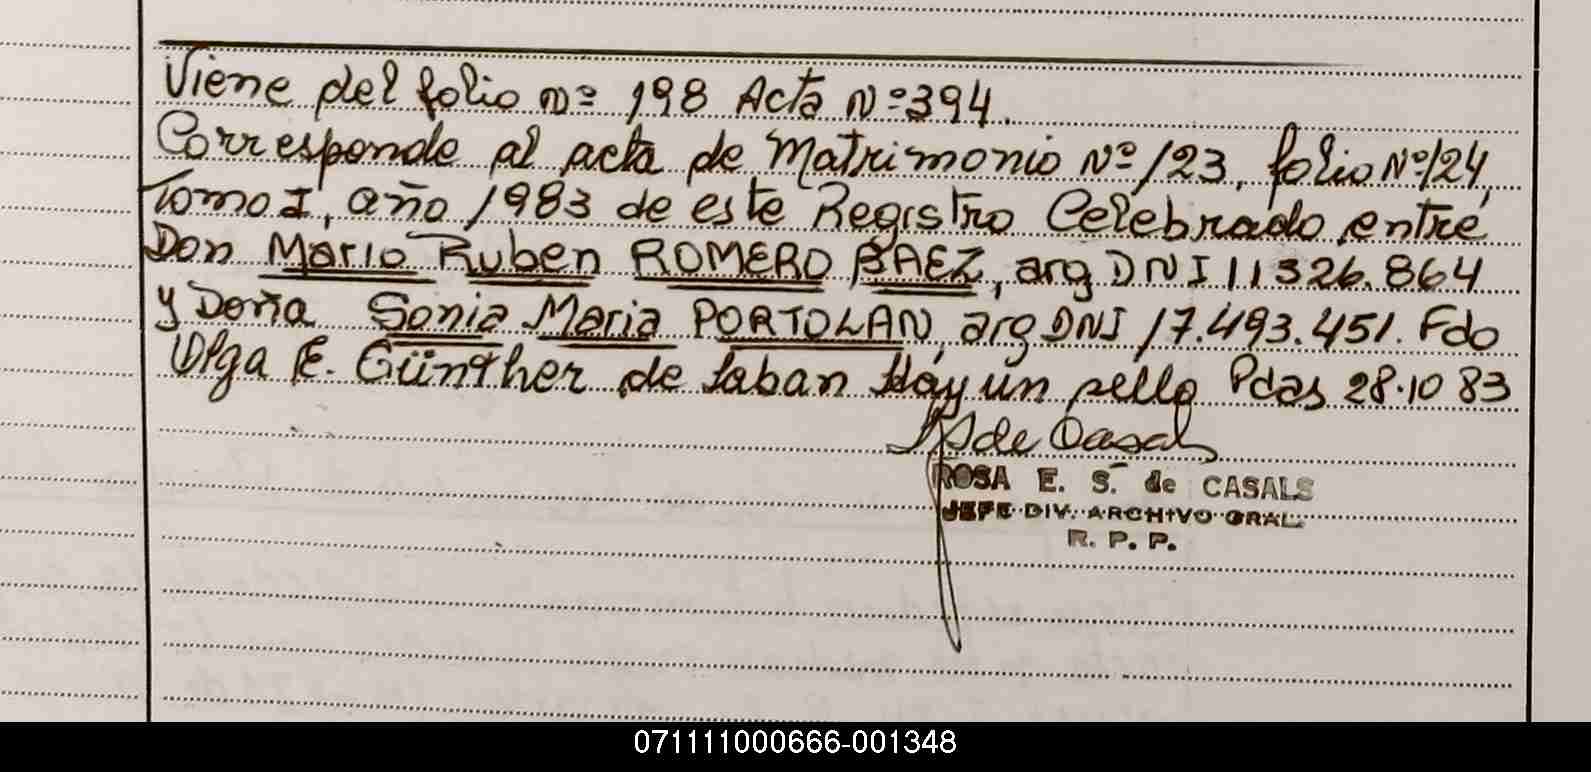 Viene del folio Nº 198 Acta Nº 394.
Corresponde al acta de Matrimonio Nº 123, folio Nº 124,
Tomo I, año 1983 de este Registro Celebrado entre
Don Mario Ruben ROMERO BAEZ, arg DNI 11326.864
y Doña Sonia Maria PORTOLAN, arg DNI 17.493.451. Fdo
Olga E. Günther de Laban Hay un sello Pdas 28.10 83
de Casals
ROSA E. S. de CASALS
JEFE DIV. ARCHIVO GRAL.
R. P. P.
071111000666-001348